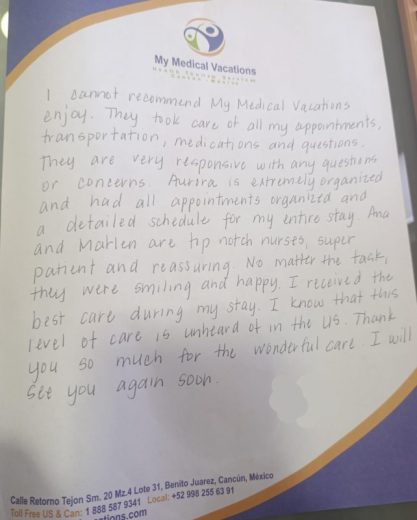 My Medical Vacations
Health Tourism Services
Cancun - Mexico
I cannot recommend My Medical Vacations
enjoy. They took care of all my appointments,
transportation, medications and questions.
They are very responsive with any questions
or concerns. Aurora is extremely organized
and had all appointments organized and
a detailed schedule for my entire stay. Ana
and Marlen are tip notch nurses, super
patient and reassuring. No matter the task,
they were smiling and happy. I received the
best care during my stay. I know that this
level of care is unheard of in the US. Thank
you so much for the wonderful care. I will
see you again soon.
Calle Retorno Tejon Sm. 20 Mz.4 Lote 31, Benito Juarez, Cancún, México
Toll Free US & Can: 1 888 587 9341 Local: +52 998 255 63 91
ations.com